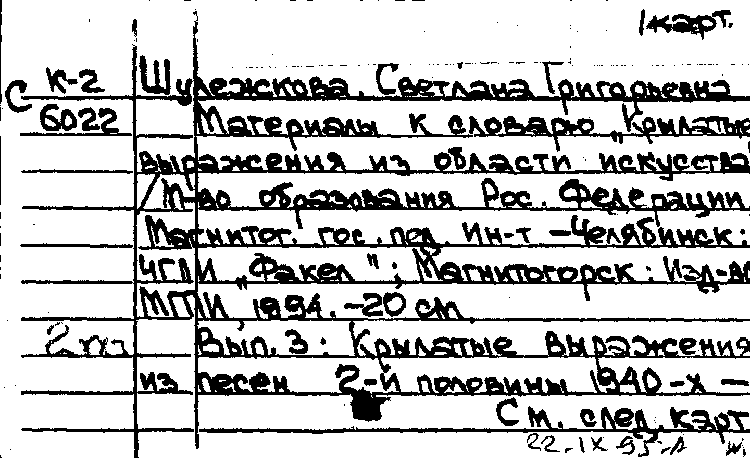 1карт.
К-2 Шулежкова, Светлана Григорьевна
С
6022 Материалы к словарю „Крылатые
выражения из области искусства
/ М-во образования Рос. Федерации
Магнитог. гос. пед. Ин-т – Челябинск:
ЧГПИ „Факел"; Магнитогорск: Изд-во
МГПИ, 1994. – 20 см.
2 экз Вып. 3: Крылатые выражения
из песен 2-й половины 1940-х –
См. след. карт
22-IX 95